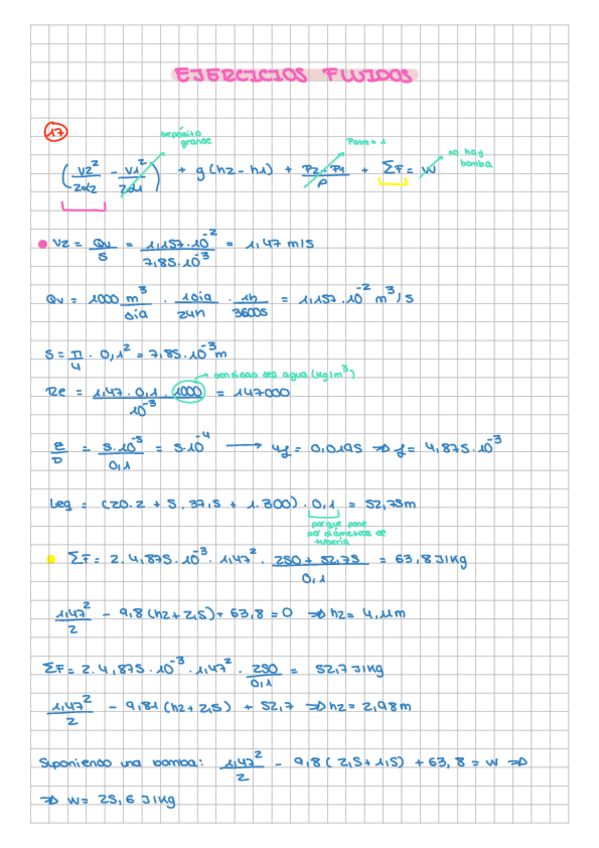 EJERCICIOS FLUIDOS
17
depósito grande
Patm = 1
no hay bomba
(V2²/2α2 - V1²/2α1) + g(h2 - h1) + P2 - P1/ρ + ΣF = W
V2 = Qv/S = 1,157·10⁻²/7,85·10⁻³ = 1,47 m/s
Qv = 1000 m³/día · 1día/24h · 1h/3600s = 1,157·10⁻² m³/s
S = π/4 · 0,1² = 7,85·10⁻³ m
densidad del agua (kg/m³)
Re = 1,47 · 0,1 · 1000/10⁻³ = 147000
E/D = 5·10⁻⁵/0,1 = 5·10⁻⁴ → 4f = 0,0195 ⇒ f = 4,875·10⁻³
Leq = (20·2 + 5·37,5 + 1·300) · 0,1 = 52,75m
porque pone
por diámetros de
tubería
ΣF = 2·4,875·10⁻³ · 1,47² · 250 + 52,75/0,1 = 63,8 J/kg
1,47²/2 - 9,8(h2 + 2,5) + 63,8 = 0 ⇒ h2 = 4,11m
ΣF = 2·4,875·10⁻³ · 1,47² · 250/0,1 = 52,7 J/kg
1,47²/2 - 9,81(h2 + 2,5) + 52,7 ⇒ h2 = 2,98m
Suponiendo una bomba: 1,47²/2 - 9,8(2,5 + 1,5) + 63,8 = W ⇒
⇒ W = 25,6 J/kg